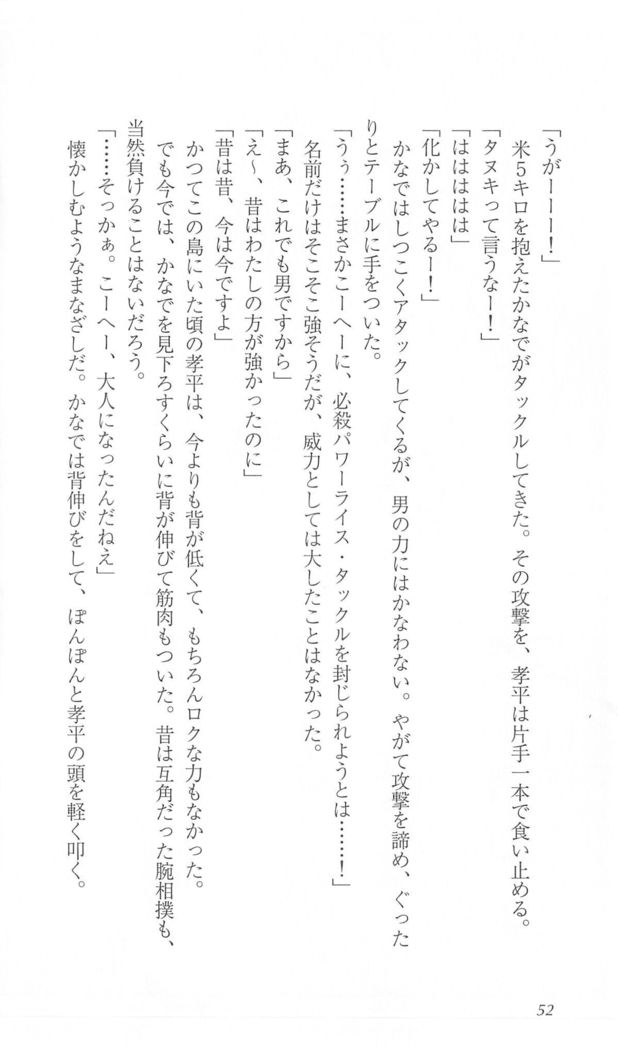 「うがーーー！」
　米５キロを抱えたかなでがタックルしてきた。その攻撃を、孝平は片手一本で食い止める。
「タヌキって言うなー！」
「ははははは」
「化かしてやるー！」
　かなではしつこくアタックしてくるが、男の力にはかなわない。やがて攻撃を諦め、ぐった
りとテーブルに手をついた。
「うぅ……まさかこーへーに、必殺パワーライス・タックルを封じられようとは……！」
　名前だけはそこそこ強そうだが、威力としては大したことはなかった。
「まあ、これでも男ですから」
「え〜、昔はわたしの方が強かったのに」
「昔は昔、今は今ですよ」
　かつてこの島にいた頃の孝平は、今よりも背が低くて、もちろんロクな力もなかった。
　でも今では、かなでを見下ろすくらいに背が伸びて筋肉もついた。昔は互角だった腕相撲も、
当然負けることはないだろう。
「……そっかぁ。こーへー、大人になったんだねえ」
　懐かしむようなまなざしだ。かなでは背伸びをして、ぽんぽんと孝平の頭を軽く叩く。
52